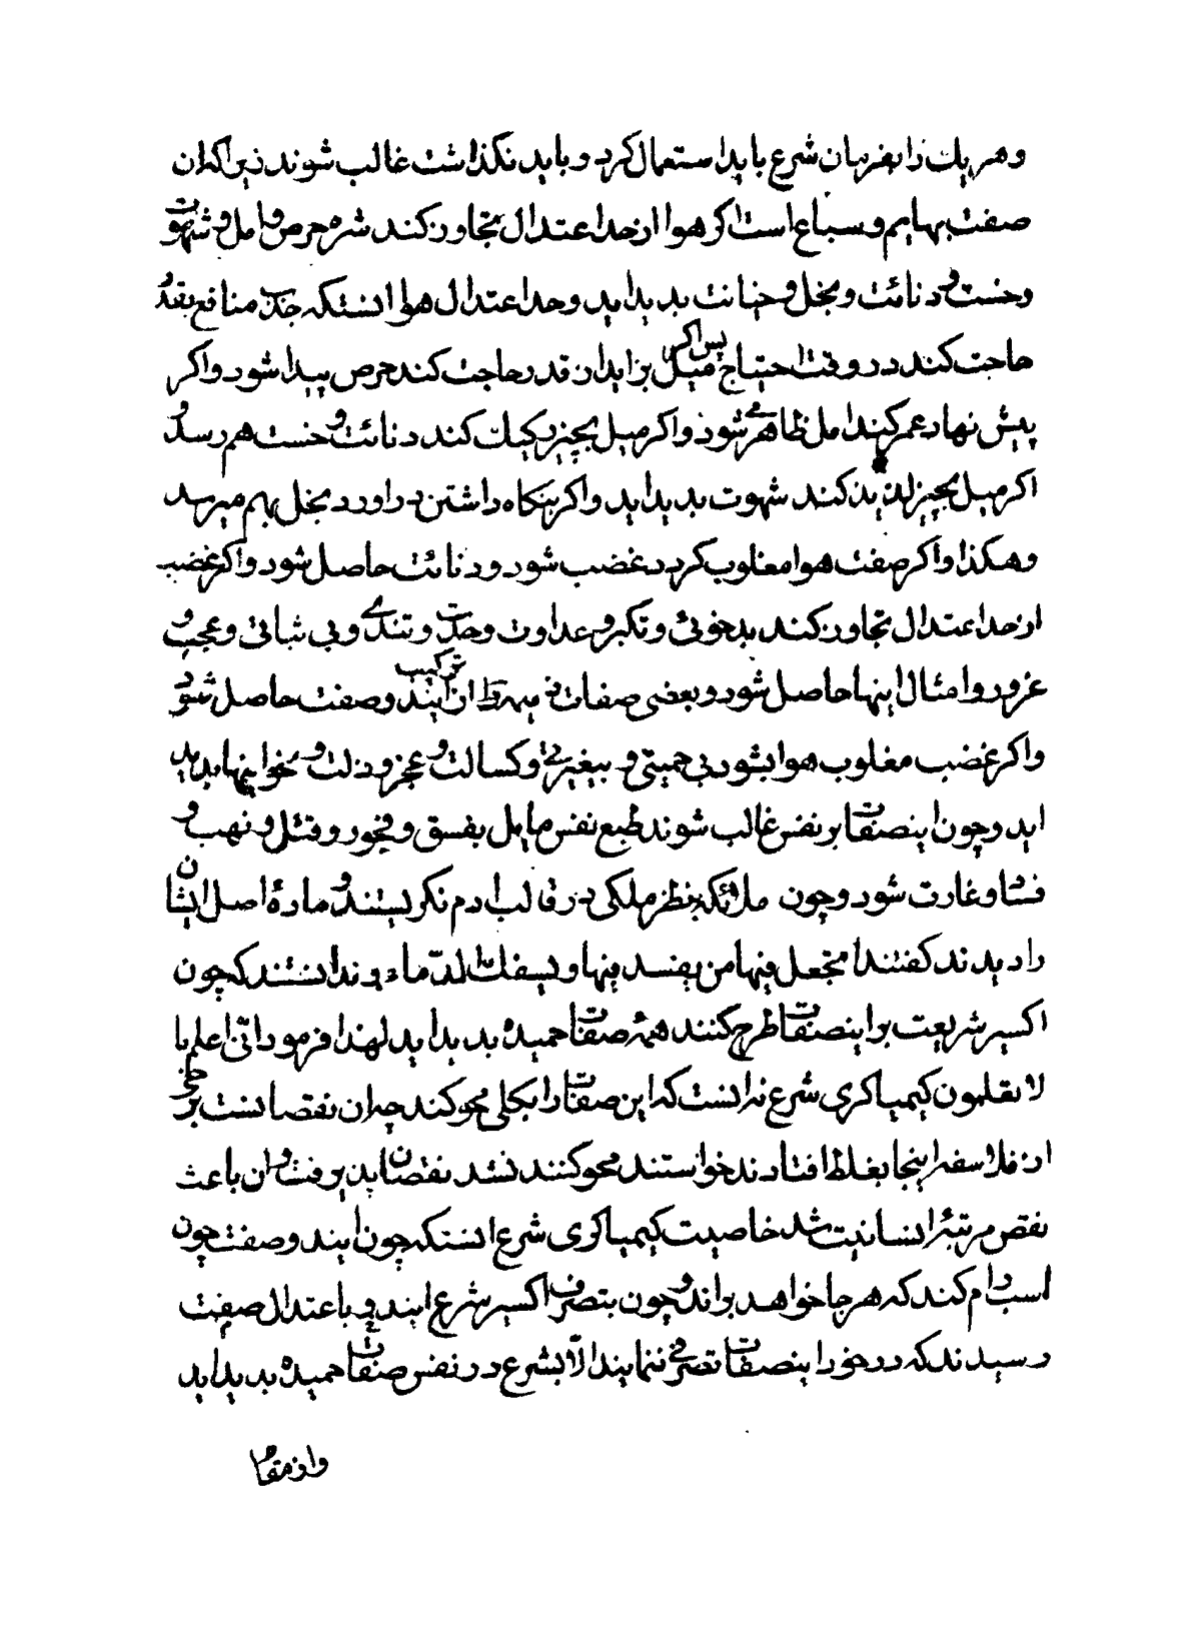 وهر یك را بفرمان شرع باید استعمال کرد و باید نگذاشت غالب شوند زیراکه ان
صفت بهایم و سباع است اگر هوا از حد اعتدال تجاوز کند شره و حرص و امل و شهوت
و خست و دنائت و بخل و خیانت پدید اید و حد اعتدال هوا انستکه جذب منافع بقدر
حاجت کند در وقت احتیاج پس اگر میل بزاید از قدر حاجت کند حرص پیدا شود و اگر
پیش نهاد عمر کند امل ظاهر می شود و اگر میل بچیز رکیك کند دنائت و خست هم رسد و
اگر میل بچیز لذیذ کند شهوت پدید اید و اگر بنکاه داشتن در اورد بخل بهم میرسد
و هکذا و اگر صفت هوا مغلوب کردد غضب شود و دنائت حاصل شود و اگر غضب
از حد اعتدال تجاوز کند بدخوئی و تکبر و عداوت و حدت و تندی و بی ثباتی و عجب و
غرور و امثال اینها حاصل شود و بعضی صفات نیز از ترکیب ایندو صفت حاصل شود
و اگر غضب مغلوب هوا بشود بی حمیتی و بیغیرتی و کسالت و عجز و ذلت و نحو اینها پدید
اید و چون اینصفات بر نفس غالب شوند طبع نفس مایل بفسق و فجور و قتل و نهب و
فساد و غارت شود و چون ملائکه بنظر ملکی در قالب ادم نگریستند و ماده اصل ایشان
را دیدند کفتند اتجعل فیها من یفسد فیها و یسفك الدّماء و ندانستند که چون
اکسیر شریعت بر اینصفات طرح کنند همهٔ صفات حمیده پدید اید لهذا فرمود انّی اعلم ما
لا تعلمون کیمیاکری شرع نه انست که این صفات را بکلی محو کند چه ان نقصانست برخی
از فلاسفه اینجا بغلط افتادند خواستند محو کنند نشد نقصان پذیرفت و ان باعث
نقص مرتبهٔ انسانیت شد خاصیت کیمیاکری شرع انستکه چون ایندو صفت چون
اسب رام کند که هر جا خواهد براند و چون بتصرف اکسیر شرع ایند و باعتدال صفت
رسیدند که در خود اینصفات تصرفی ننمایند الّا بشرع در نفس صفات حمیده پدید اید
و از مقام